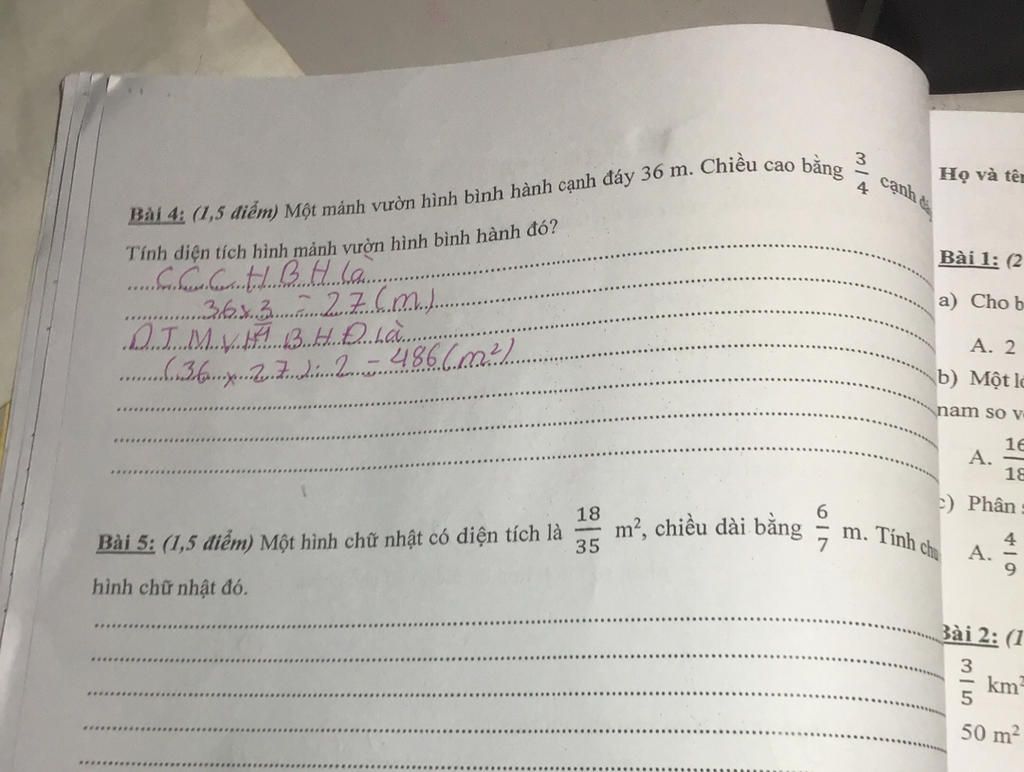 Bài 4: (1,5 điểm) Một mảnh vườn hình bình hành cạnh đáy 36 m. Chiều cao bằng 3/4 cạnh
Tính diện tích hình mảnh vườn hình bình hành đó?
C C C H B H là
36 x 3/4 = 27 (m)
D T M V H B H Đ là
(36 x 27) : 2 = 486 (m²)
Bài 5: (1,5 điểm) Một hình chữ nhật có diện tích là 18/35 m², chiều dài bằng 6/7 m. Tính
hình chữ nhật đó.
Họ và
Bài 1: (2
a) Cho
A. 2
b) Một
nam so
A. 16/18
c) Phân
A. 4/9
Bài 2: (1
3/5 km²
50 m²